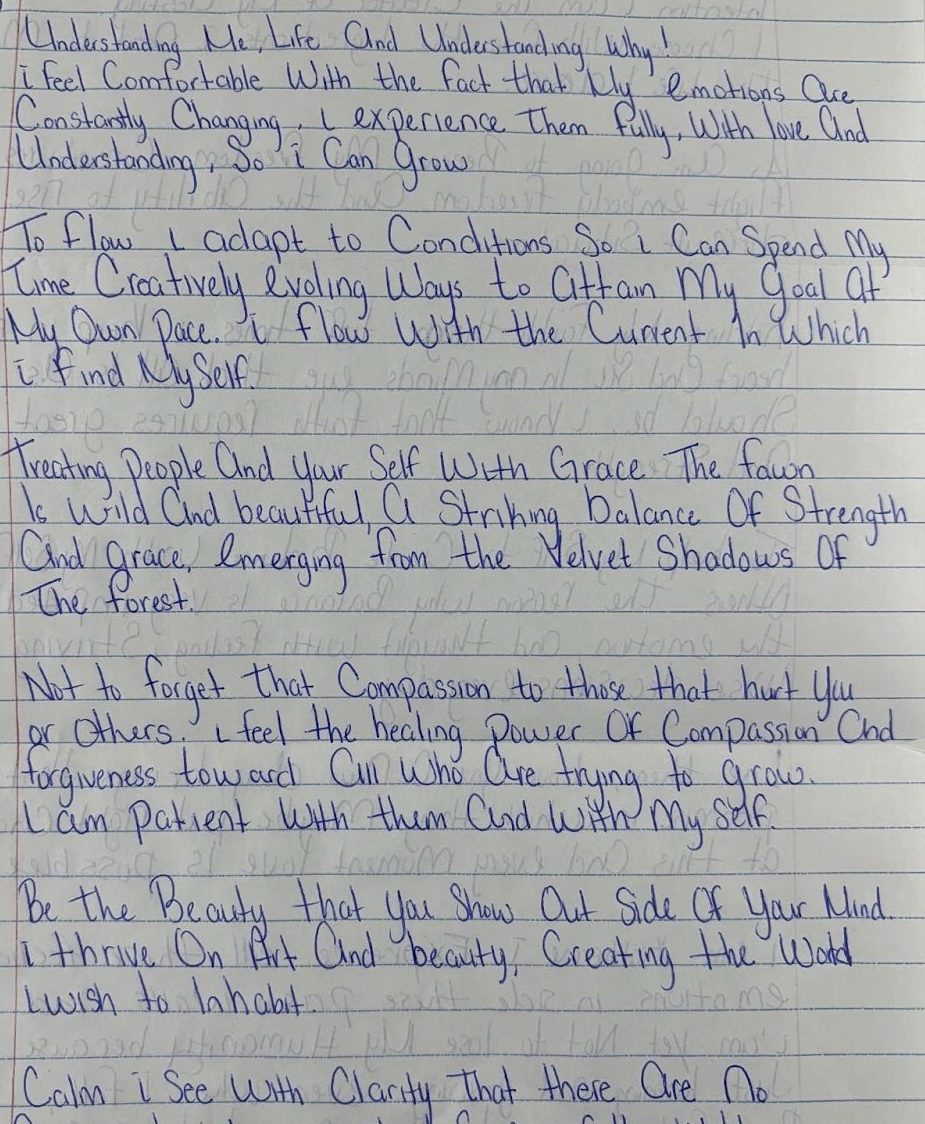 Understanding Me, Life And Understanding Why!
i feel Comfortable With the fact that My emotions Are
Constantly Changing, I experience Them fully, With love And
Understanding, So i Can grow
To flow I adapt to Conditions So i Can Spend My
Time Creatively evoling Ways to attain My Goal At
My Own Pace. i flow With the Current In Which
i find My Self.
Treating People And Your Self With Grace The fawn
Is Wild And beautiful, A Striking balance Of Strength
And grace, emerging from the Velvet Shadows Of
The forest.
Not to forget that Compassion to those that hurt You
or Others. I feel the healing Power Of Compassion And
forgiveness toward All Who Are trying to grow.
I am Patient With them And With My Self.
Be the Beauty that You Show Out Side Of Your Mind.
i thrive On Art And beauty, Creating the World
I wish to Inhabit.
Calm i See With Clarity That there Are No